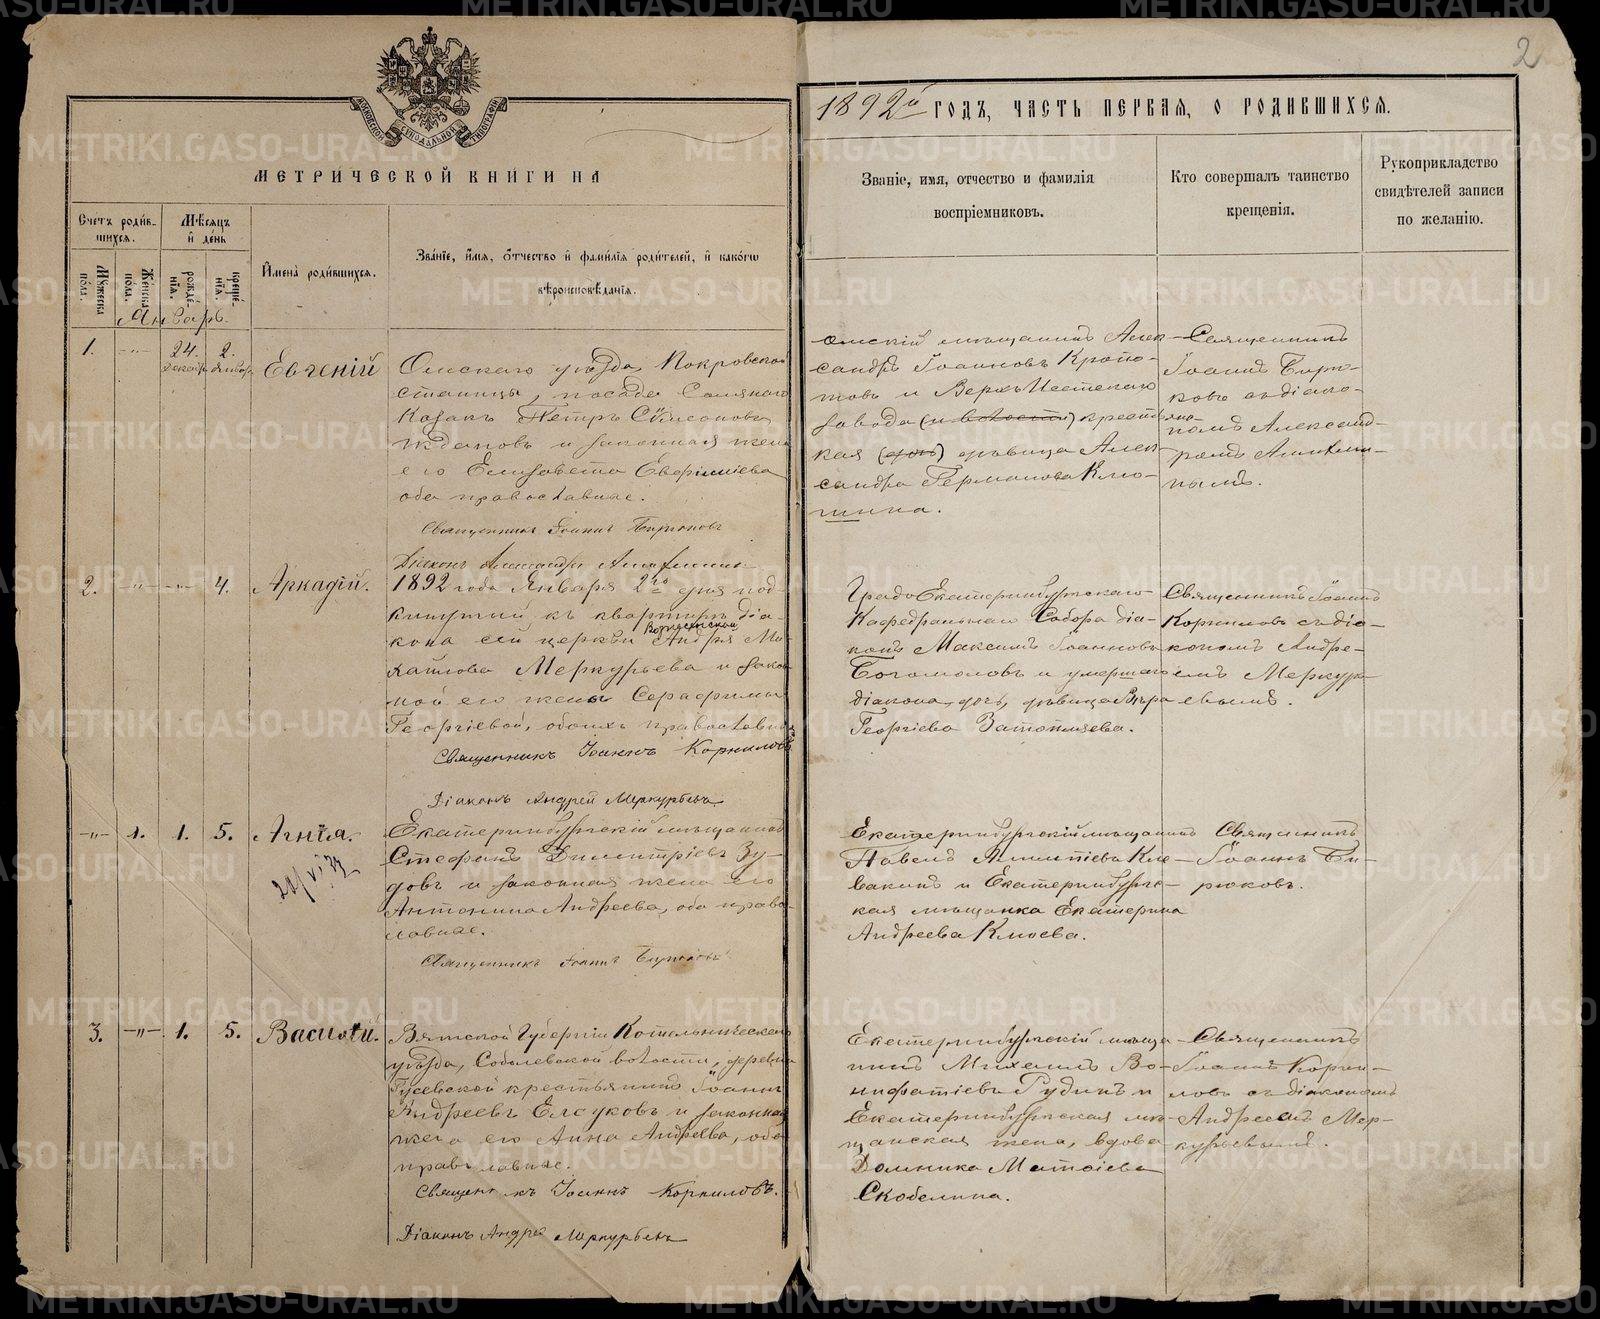 2
МЕТРИЧЕСКОЙ КНИГИ НА
1892й ГОДЪ, ЧАСТЬ ПЕРВАЯ, О РОДИВШИХСЯ.
Счетъ родив-
шихся.
Мѣсяцъ
и день
Мужеска
пола.
Женска
пола.
рожде-
нія.
креще-
нія.
Имена родившихся.
Званіе, имя, отчество и фамилія родителей, и какого
вѣроисповѣданія.
Званіе, имя, отчество и фамилія
воспріемниковъ.
Кто совершалъ таинство
крещенія.
Рукоприкладство
свидѣтелей записи
по желанію.
Январь.
1.
-"-
24.
декабр
2.
январ
Евгеній
Омскаго уѣзда, Покровской
станицы, посада
Козакъ Петръ Симеоновъ
Ждановъ и законная жена
его Елизавета Евфиміева
оба православные.
Священникъ Іоаннъ Бирюковъ
Діаконъ Александръ
Омскій мѣщанинъ Алек-
сандръ Іоанновъ Крото-
товъ и Верхъ Исетскаго
завода (и волости) крестьянс-
кая (дочь) дѣвица Алек-
сандра Германова Клю-
шина.
Священникъ
Іоаннъ Бирю-
ковъ съ діако-
номъ Александ-
ромъ
2.
-"-
-"-
4.
Аркадій.
1892 года Января 2го дня под-
кинутый къ квартирѣ діа-
кона сей церкви Вознесенской Андрея Ми-
хайлова Меркурьева и закон-
ной его жены Серафимы
Георгіевой, обоихъ православныхъ
Священникъ Іоаннъ Корниловъ
Діаконъ Андрей Меркурьевъ
Градо Екатеринбургскаго
Кафедральнаго Собора діа-
конъ Максимъ Іоанновъ
Богомоловъ и умершаго
діакона дочь, дѣвица Вѣра
Георгіева Затопляева.
Священникъ Іоаннъ
Корниловъ съ діа-
кономъ Андре-
емъ Меркурь-
евымъ.
-"-
1.
1.
5.
Агнія.
Екатеринбургскій мѣщанинъ
Стефанъ Димитріевъ Зу-
довъ и законная жена его
Антонина Андреева, оба право-
славные.
Священникъ Іоаннъ Бирюковъ
Екатеринбургскій мѣщанинъ
Павелъ Клe-
вакинъ и Екатеринбургс-
кая мѣщанка Екатерина
Андреева Клюева.
Священникъ
Іоаннъ Би-
рюковъ.
3.
-"-
1.
5.
Василій.
Вятской Губерніи Котельническаго
уѣзда, Соболевской волости, деревни
Гусевской крестьянинъ Іоаннъ
Андреевъ Елсуковъ и законная
жена его Анна Андреева, оба
православные.
Священникъ Іоаннъ Корниловъ.
Діаконъ Андрей Меркурьевъ
Екатеринбургскій мѣща-
нинъ Михаилъ Во-
нифатіевъ Рудинъ и
Екатеринбургская мѣ-
щанская жена, вдова
Домника Матвіева
Скобелина.
Священникъ
Іоаннъ Корни-
ловъ съ діакономъ
Андреемъ Мер-
курьевымъ.
METRIKI.GASO-URAL.RU